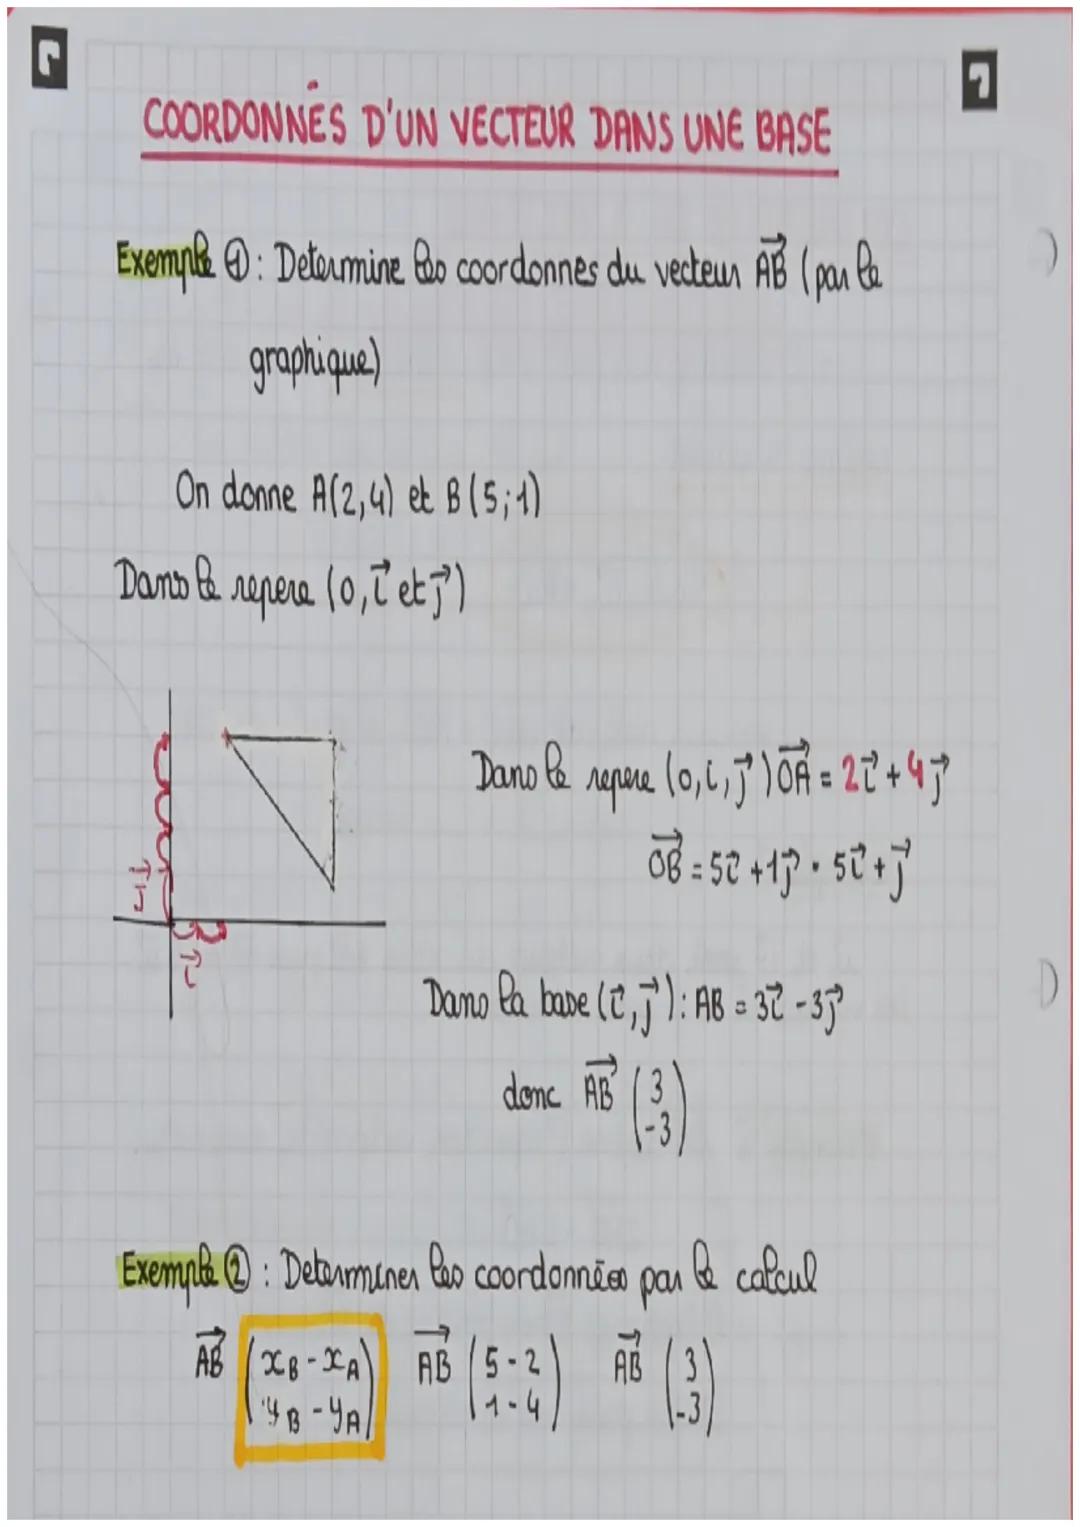 COORDONNÉS D'UN VECTEUR DANS UNE BASE
Exemple ①: Determine les coordonnes du vecteur AB⃗ (par le
graphique)
On donne A(2,4) et B(5;1)
Dans le repere (0, i⃗ et j⃗)
Dans le repere (0, i, j⃗) OA⃗ = 2i⃗ + 4j⃗
OB⃗ = 5i⃗ + 1j⃗ = 5i⃗ + j⃗
j⃗
i⃗
Dans la base (i⃗, j⃗): AB = 3i⃗ - 3j⃗
donc AB⃗ (3
-3)
Exemple ②: Determiner les coordonnées par le calcul
AB⃗ (xB - xA) AB⃗ (5 - 2) AB⃗ (3)
(yB - yA) (1 - 4) (-3)